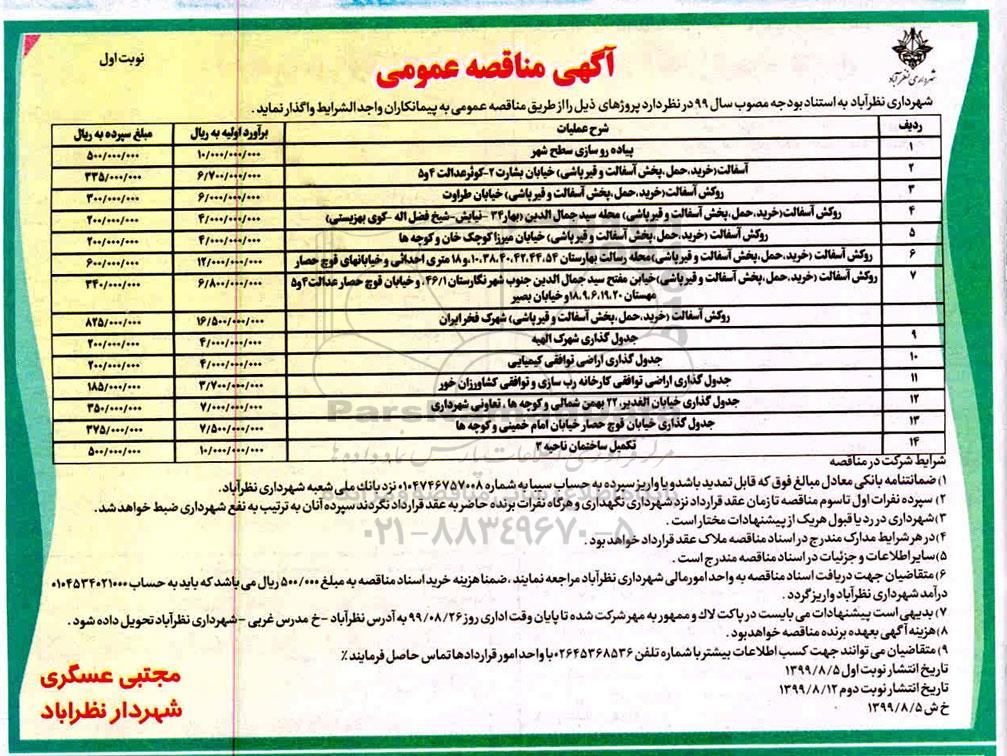 شهرداری نظرآباد
نوبت اول
آگهی مناقصه عمومی
شهرداری نظرآباد به استناد بودجه مصوب سال ۹۹ در نظر دارد پروژهای ذیل را از طریق مناقصه عمومی به پیمانکاران واجد الشرایط واگذار نماید .
ردیف شرح عملیات برآورد اولیه به ریال مبلغ سپرده به ریال
۱ پیاده رو سازی سطح شهر ۱۰/۰۰۰/۰۰۰/۰۰۰ ۵۰۰/۰۰۰/۰۰۰
۲ آسفالت(خرید،حمل،پخش آسفالت و قیرپاشی) خیابان بشارت ۲-کوثرعدالت ۴و۵ ۶/۷۰۰/۰۰۰/۰۰۰ ۳۳۵/۰۰۰/۰۰۰
۳ روکش آسفالت(خرید،حمل،پخش آسفالت و قیرپاشی) خیابان طراوت ۶/۰۰۰/۰۰۰/۰۰۰ ۳۰۰/۰۰۰/۰۰۰
۴ روکش آسفالت(خرید،حمل،پخش آسفالت و قیرپاشی) محله سید جمال الدین (بهار۳۴ -نیایش-شیخ فضل اله -کوی بهزیستی) ۴/۰۰۰/۰۰۰/۰۰۰ ۲۰۰/۰۰۰/۰۰۰
۵ روکش آسفالت (خرید،حمل،پخش آسفالت و قیرپاشی) خیابان میرزا کوچک خان و کوچه ها ۴/۰۰۰/۰۰۰/۰۰۰ ۲۰۰/۰۰۰/۰۰۰
۶ روکش آسفالت (خرید،حمل،پخش آسفالت و قیرپاشی)محله رسالت بهارستان ۱۰،۳۸،۴۰،۴۲،۴۴،۵۴،و ۱۸ متری احداثی و خیابانهای قوچ حصار ۱۲/۰۰۰/۰۰۰/۰۰۰ ۶۰۰/۰۰۰/۰۰۰
۷ روکش آسفالت (خرید،حمل،پخش آسفالت و قیرپاشی)خیابن مفتح سید جمال الدین جنوب شهر نگارستان ۴۶/۱، و خیابان قوچ حصار عدالت۴و۵ ۶/۸۰۰/۰۰۰/۰۰۰ ۳۴۰/۰۰۰/۰۰۰
مهستان ۱۸،۹،۶،۱۹،۲۰و خیابان بصیر
روکش آسفالت (خرید،حمل،پخش آسفالت و قیرپاشی) شهرک فخر ایران ۱۶/۵۰۰/۰۰۰/۰۰۰ ۸۲۵/۰۰۰/۰۰۰
۹ جدول گذاری شهرک الهیه ۴/۰۰۰/۰۰۰/۰۰۰ ۲۰۰/۰۰۰/۰۰۰
۱۰ جدول گذاری اراضی توافقی کیمیایی ۴/۰۰۰/۰۰۰/۰۰۰ ۲۰۰/۰۰۰/۰۰۰
۱۱ جدول گذاری اراضی توافقی کارخانه رب سازی و توافقی کشاورزان خور ۳/۷۰۰/۰۰۰/۰۰۰ ۱۸۵/۰۰۰/۰۰۰
۱۲ جدول گذاری خیابان الغدیر، ۲۲ بهمن شمالی و کوچه ها ، تعاونی شهرداری ۷/۰۰۰/۰۰۰/۰۰۰ ۳۵۰/۰۰۰/۰۰۰
۱۳ جدول گذاری خیابان قوچ حصار خیابان امام خمینی و کوچه ها ۷/۵۰۰/۰۰۰/۰۰۰ ۳۷۵/۰۰۰/۰۰۰
۱۴ تکمیل ساختمان ناحیه ۳ ۱۰/۰۰۰/۰۰۰/۰۰۰ ۵۰۰/۰۰۰/۰۰۰
شرایط شرکت در مناقصه
۱) ضمانتنامه بانکی معادل مبالغ فوق که قابل تمدید باشد و یا واریز سپرده به حساب سیبا به شماره ۰۱۰۴۷۴۶۷۵۷۰۰۸ نزد بانک ملی شعبه شهرداری نظرآباد.
۲) سپرده نفرات اول تا سوم مناقصه تا زمان عقد قرارداد نزد شهرداری نگهداری و هرگاه نفرات برنده حاضر به عقد قرارداد نگردند سپرده آنان به ترتیب به نفع شهرداری ضبط خواهد شد.
۳) شهرداری در رد یا قبول هر یک از پیشنهادات مختار است .
۴) در هر شرایط مدارک مندرج در اسناد مناقصه ملاک عقد قرارداد خواهد بود .
۵) سایر اطلاعات و جزئیات در اسناد مناقصه مندرج است .
۶) متقاضیان جهت دریافت اسناد مناقصه به واحد امور مالی شهرداری نظرآباد مراجعه نمایند ، ضمنا هزینه خرید اسناد مناقصه به مبلغ ۵۰۰/۰۰۰ ریال می باشد که باید به حساب ۰۱۰۴۵۳۴۰۲۱۰۰۰
درآمد شهرداری نظرآباد واریز گردد .
۷) بدیهی است پیشنهادات می بایست در پاکت لاک و ممهور به مهر شرکت شده تا پایان وقت اداری روز ۹۹/۰۸/۲۶ به آدرس نظرآباد -خ مدرس غربی -شهرداری نظرآباد تحویل داده شود .
۸) هزینه آگهی بعهده برنده مناقصه خواهد بود .
۹) متقاضیان می توانند جهت کسب اطلاعات بیشتر با شماره تلفن ۰۲۶۴۵۳۶۸۵۳۶ با واحد امور قراردادها تماس حاصل فرمایند ٪
تاریخ انتشار نوبت اول ۱۳۹۹/۸/۵
تاریخ انتشار نوبت دوم ۱۳۹۹/۸/۱۲
خ ش ۱۳۹۹/۸/۵
مجتبی عسگری
شهردار نظراباد
۰۲۱-۸۸۳۴۹۶۷۰-۵